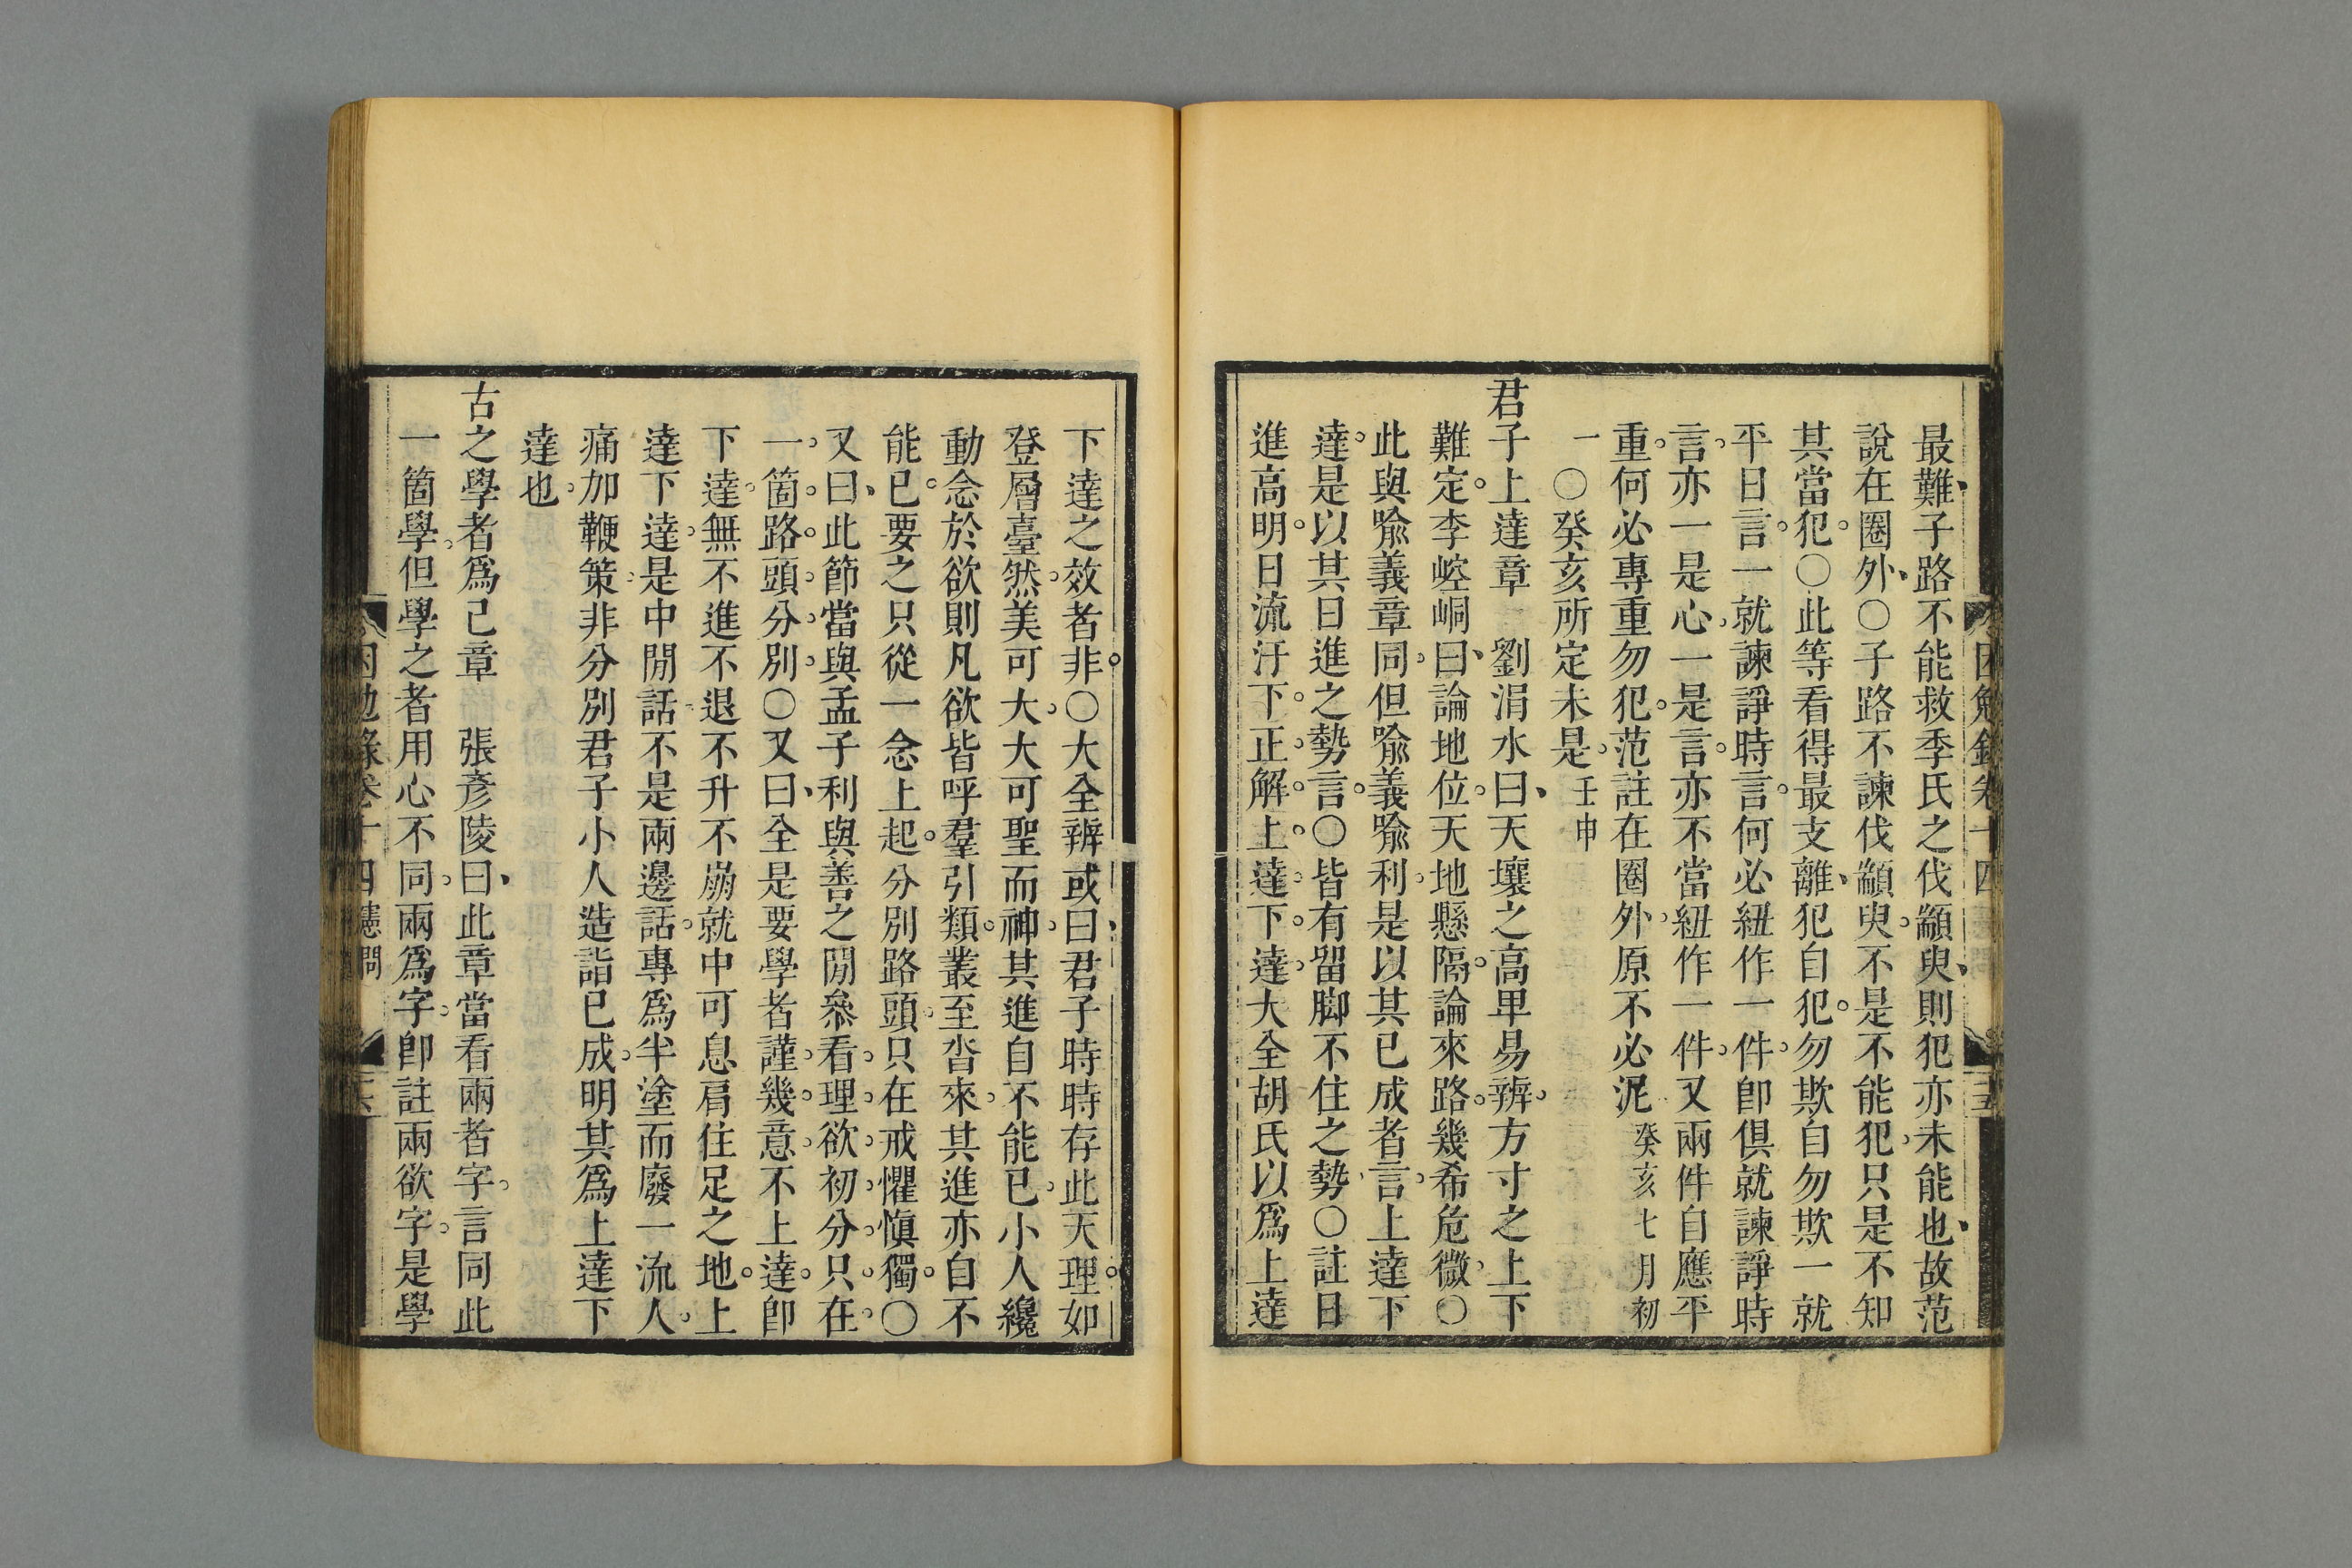 困勉錄卷十四
最難子路不能救季氏之伐顓臾則犯亦未能也故范
說在圈外○子路不諫伐顓臾不是不能犯只是不知
其當犯○此等看得最支離犯自犯勿欺自勿欺一就
平日言一就諫諍時言何必紐作一件卽俱就諫諍時
言亦一是心一是言亦不當紐作一件又兩件自應平
重何必專重勿犯范註在圈外原不必泥癸亥七月初
一○癸亥所定未是壬申
君子上達章　劉涓水曰天壤之高卑易辨方寸之上下
難定李崆峒曰論地位天地懸隔論來路幾希危微○
此與喩義章同但喩義喩利是以其已成者言上達下
達是以其日進之勢言○皆有留脚不住之勢○註日
進高明日流汙下正解上達下達大全胡氏以爲上達
下達之效者非○大全辨或曰君子時時存此天理如
登層臺然美可大大可聖而神其進自不能已小人纔
動念於欲則凡欲皆呼羣引類叢至沓來其進亦自不
能已要之只從一念上起分別路頭只在戒懼愼獨○
又曰此節當與孟子利與善之閒叅看理欲初分只在
一箇路頭分別○又曰全是要學者謹幾意不上達卽
下達無不進不退不升不崩就中可息肩住足之地上
達下達是中閒話不是兩邊話專爲半塗而廢一流人
痛加鞭策非分別君子小人造詣已成明其爲上達下
達也
古之學者爲己章　張彥陵曰此章當看兩者字言同此
一箇學但學之者用心不同兩爲字卽註兩欲字是學
困勉錄卷十四 憲問